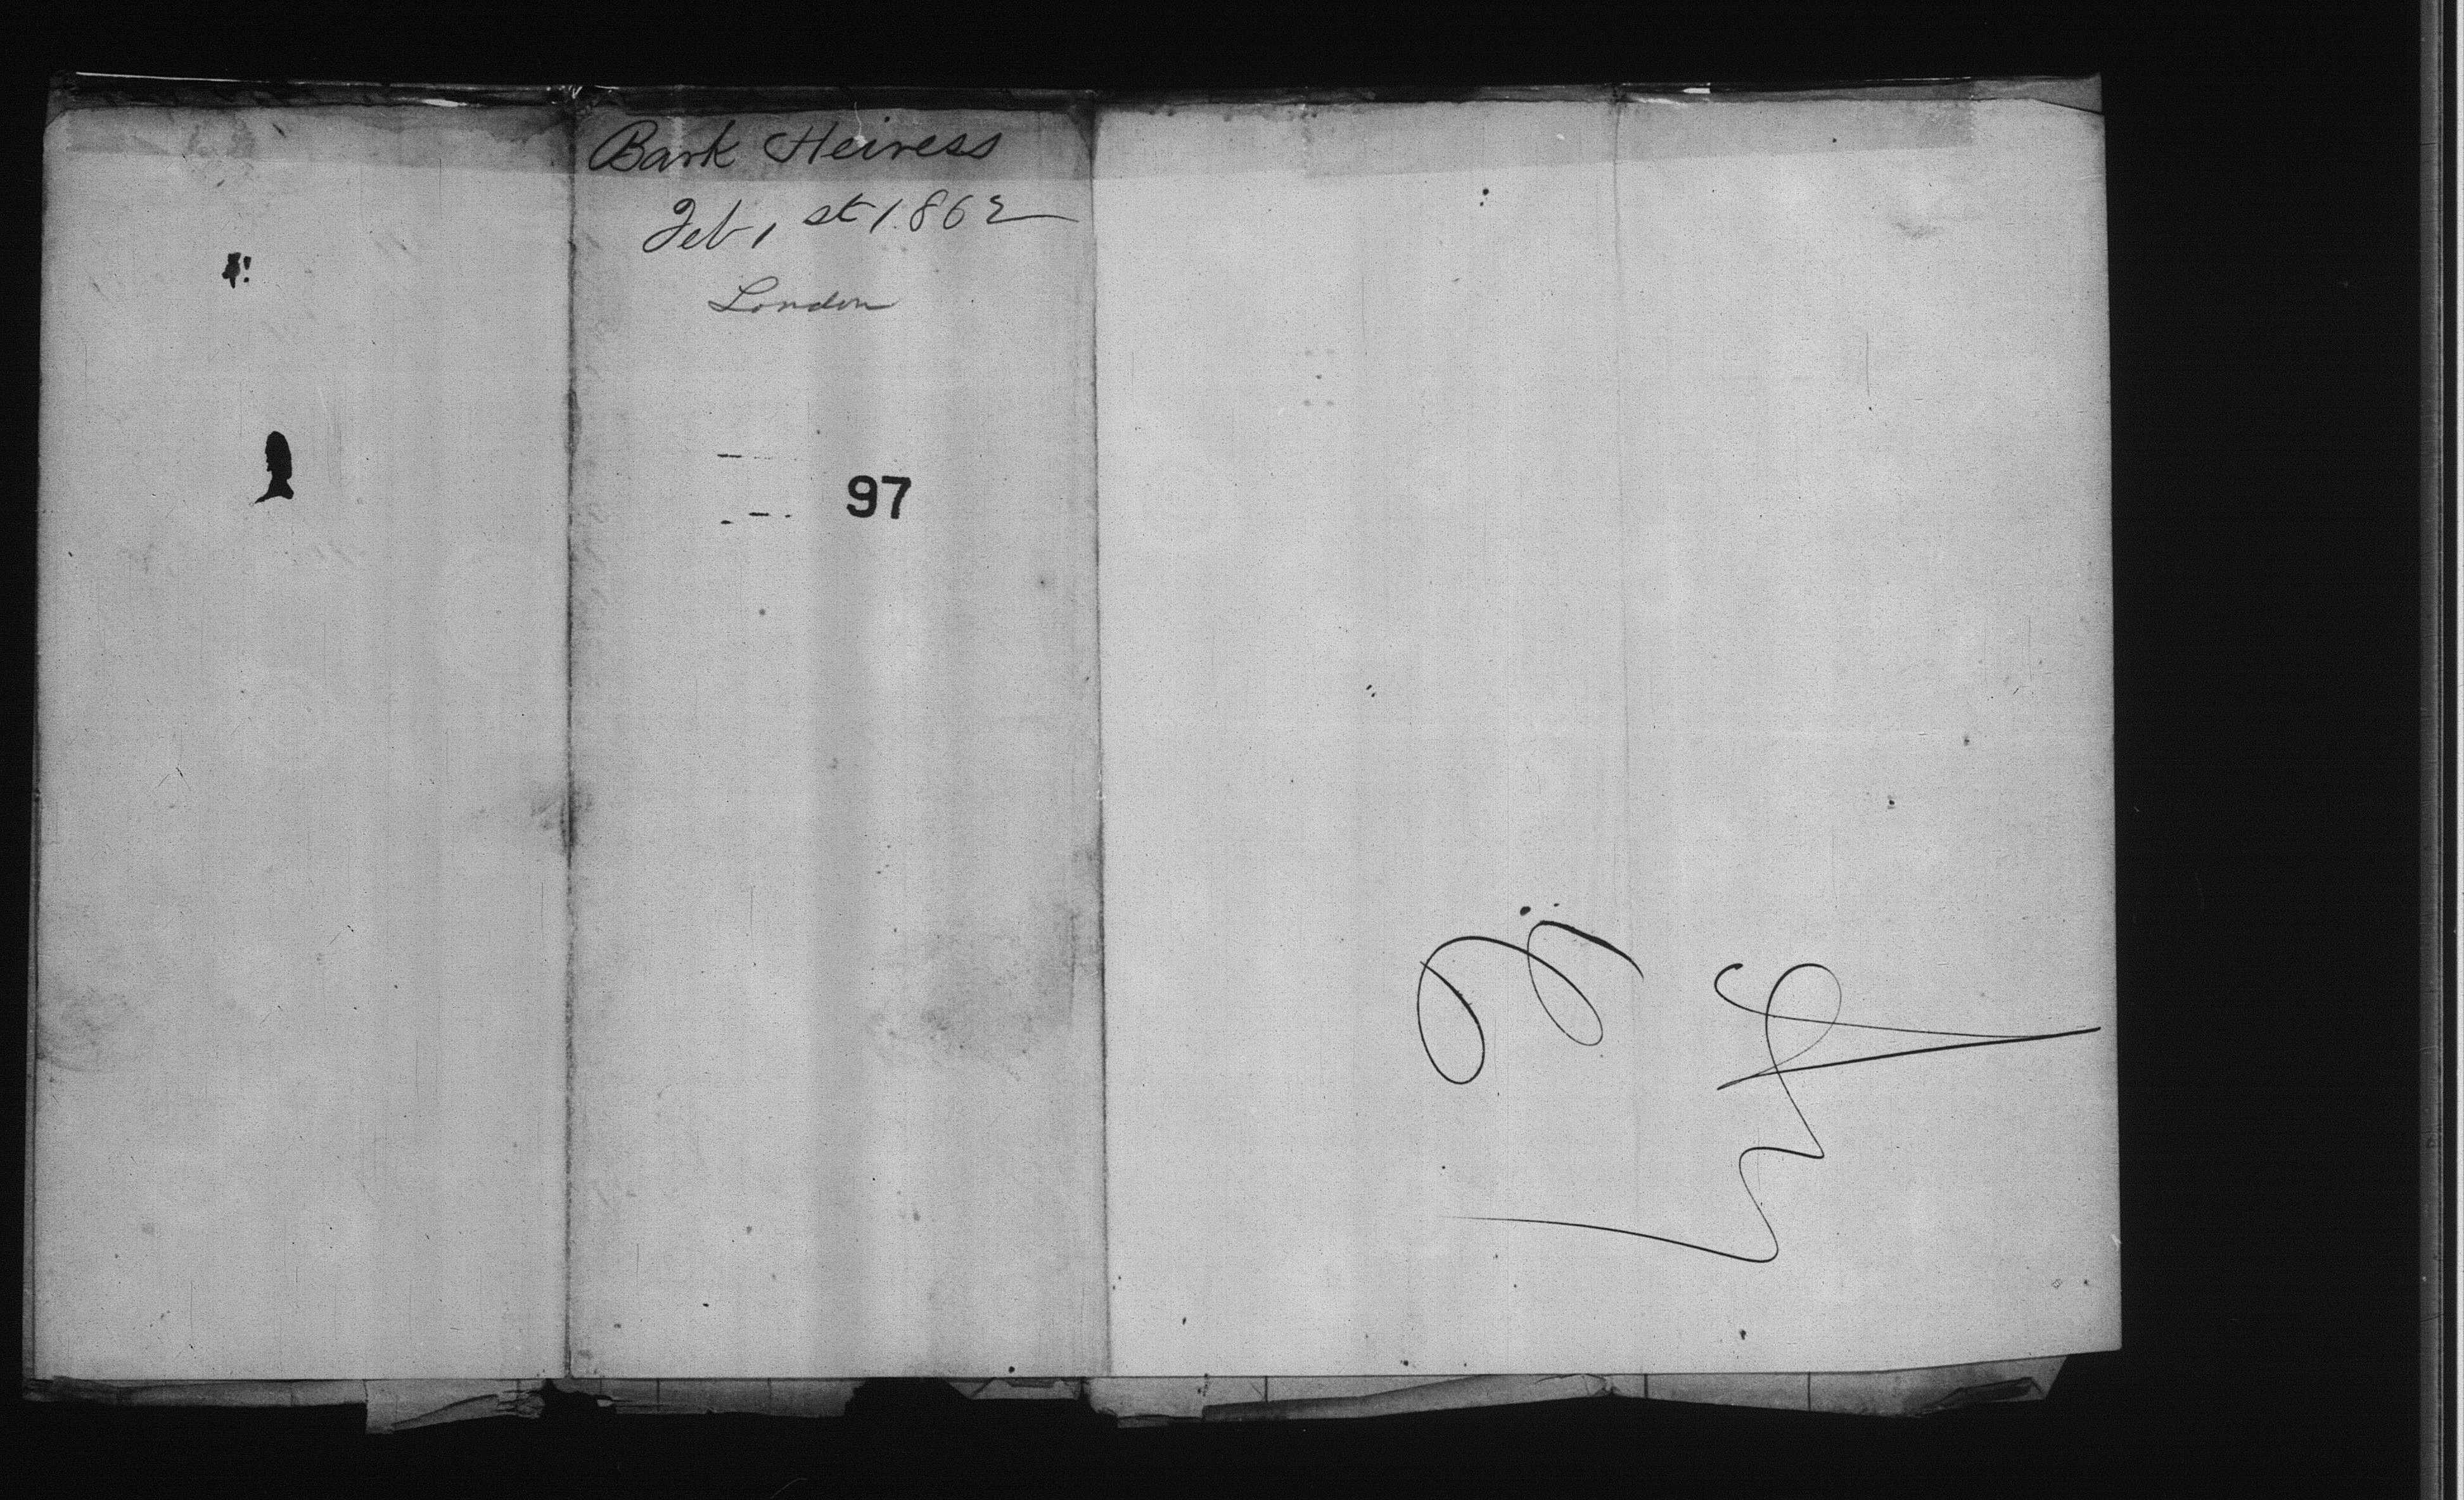 Bark Heiress
Feb, 1st 1862
London
97